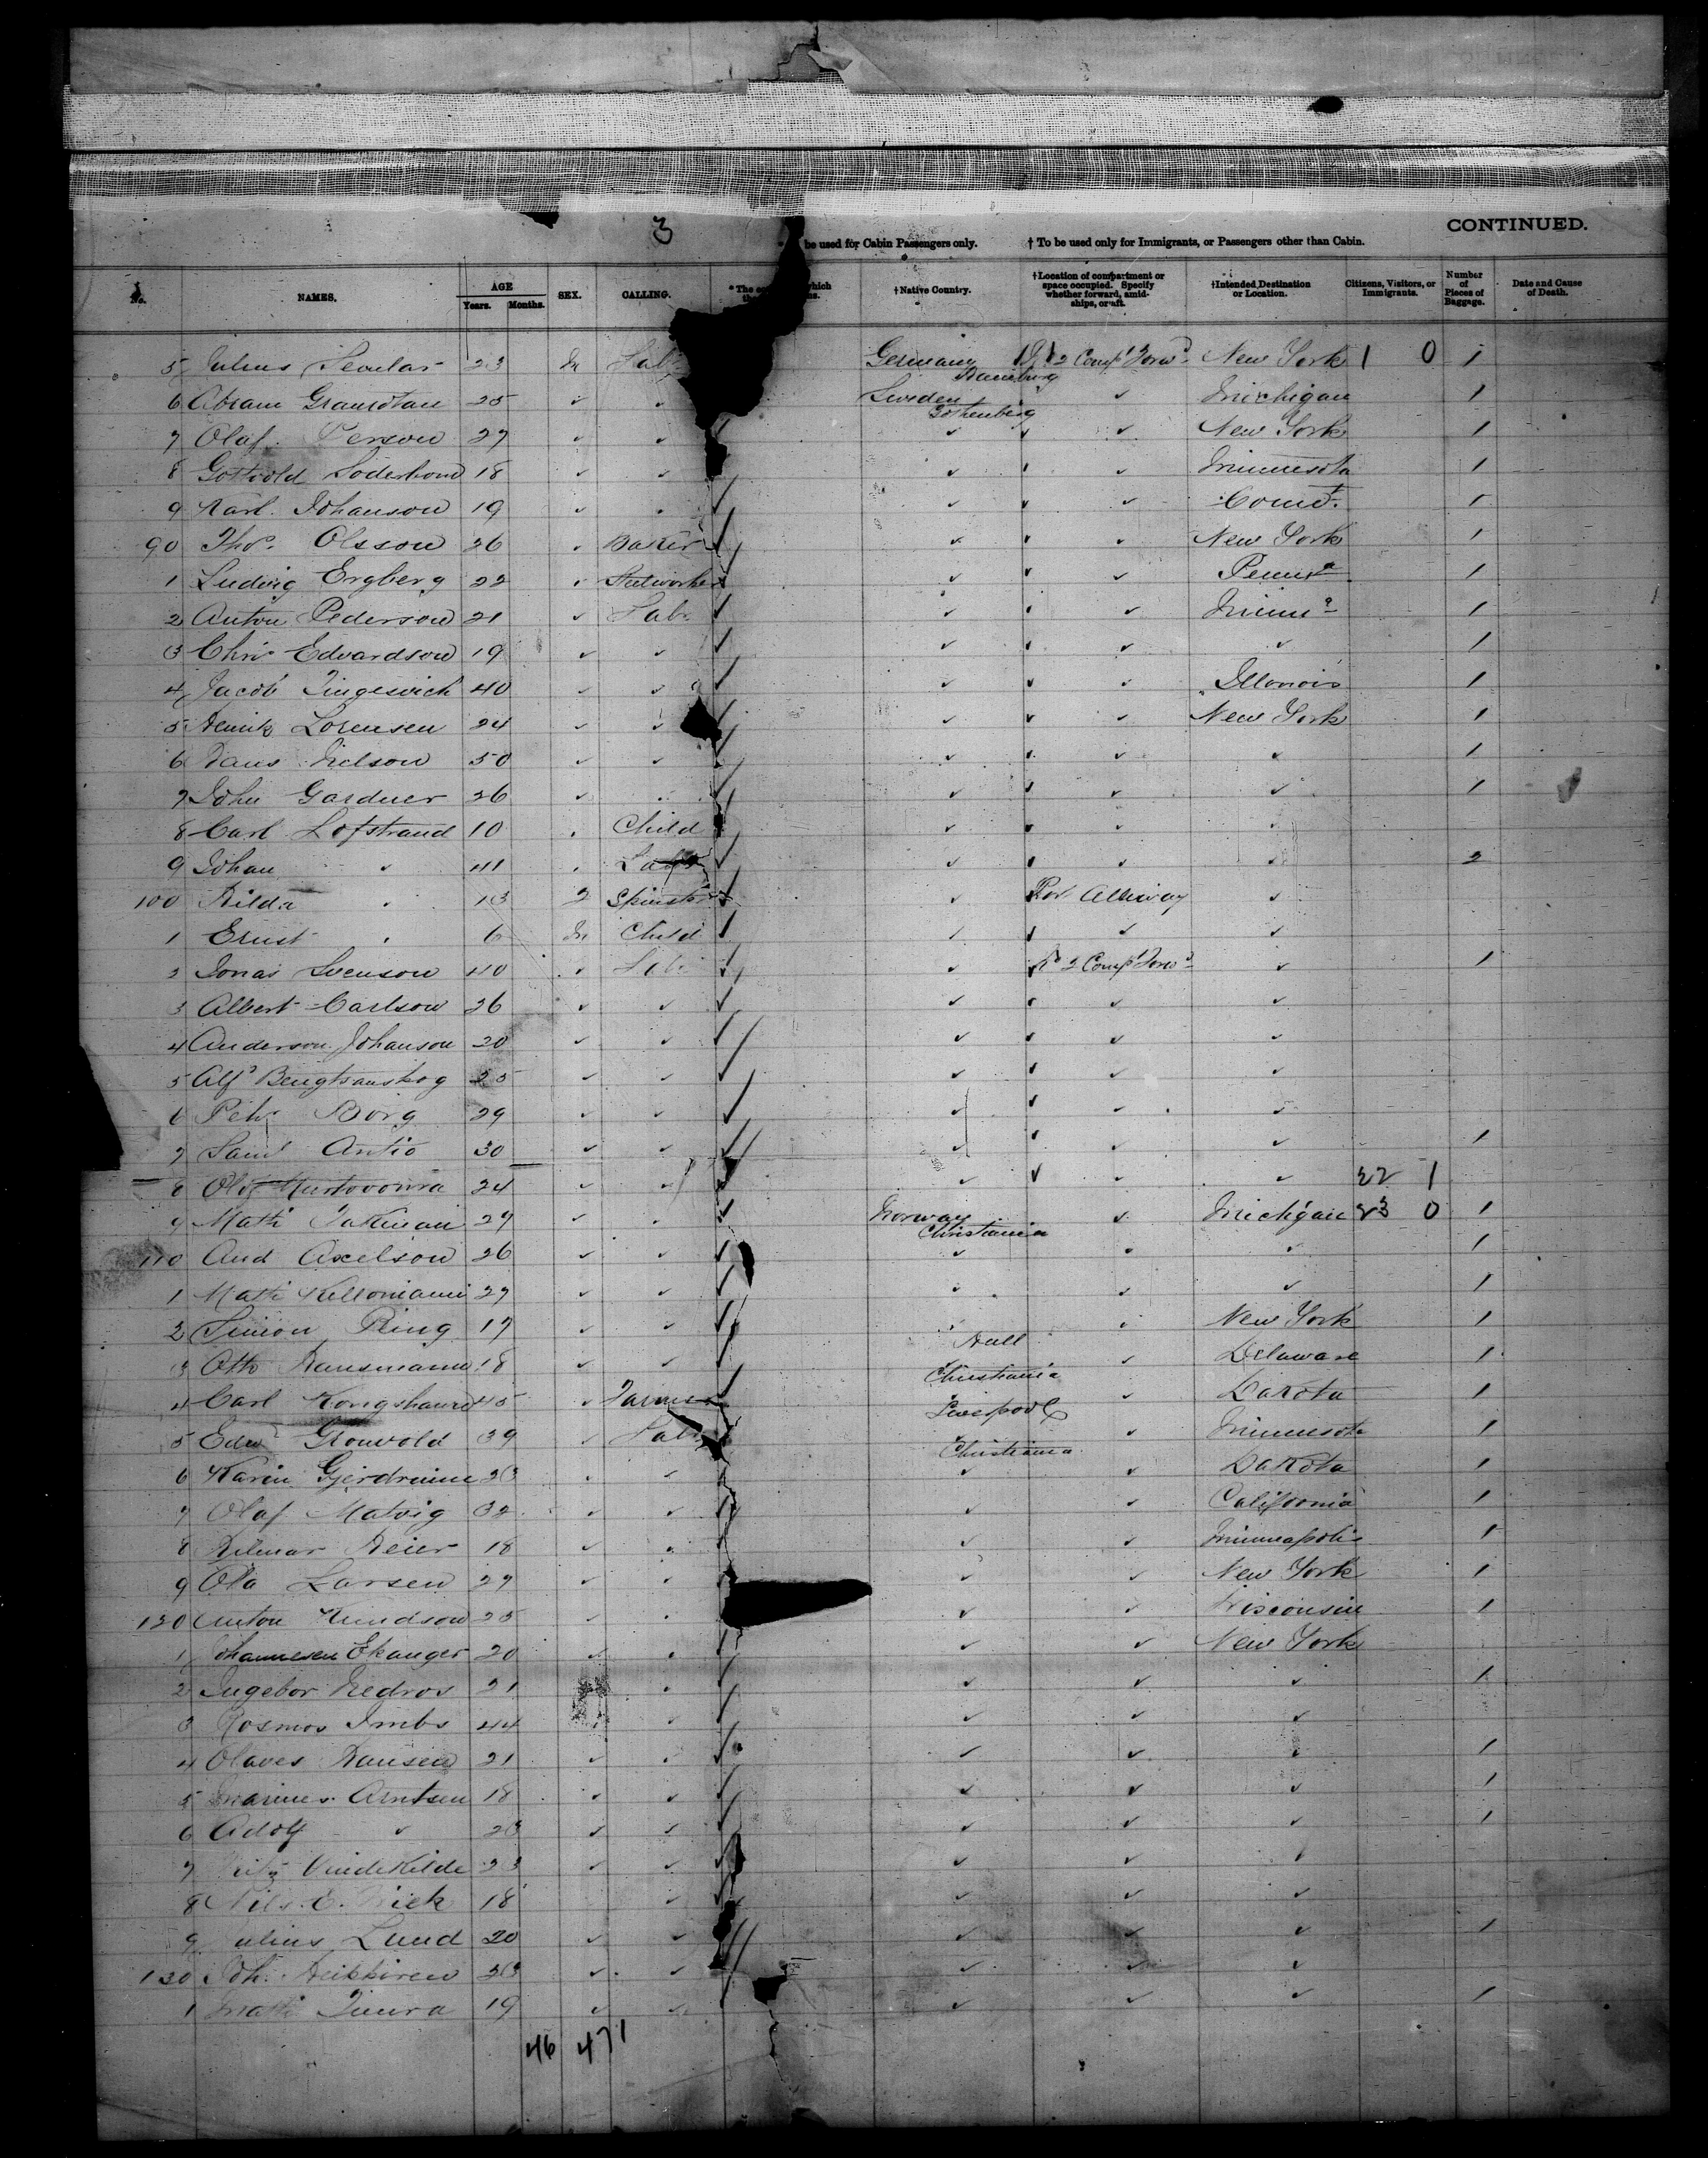 3
CONTINUED.
be used for Cabin Passengers only. † To be used only for Immigrants, or Passengers other than Cabin.
No. NAMES. AGE Years. Months. SEX. CALLING. *The which †Native Country. †Location of compartment or space occupied. Specify whether forward, amidships, or aft. †Intended Destination or Location. Citizens, Visitors, or Immigrants. Number of Pieces of Baggage. Date and Cause of Death.
5 Julius 23 M Lab Germany 2 Compt Forwd New York 1 0 1
6 Abram 25 ✓ Sweden Gothenberg ✓ Michigan 1
7 Olaf Person 27 ✓ ✓ ✓ ✓ New York 1
8 Gottvold Soderbom 18 ✓ ✓ ✓ ✓ Minnesota 1
9 Karl Johanson 19 ✓ ✓ ✓ Connt. 1
90 Thos. Olsson 26 Baker ✓ ✓ New York 1
1 Ludwig Engberg 22 ✓ ✓ Penna 1
2 Anton Pederson 21 ✓ Lab. ✓ ✓ Minna 1
3 Chris Edvardson 19 ✓ ✓ ✓ ✓ ✓ 1
4 Jacob 40 ✓ ✓ ✓ ✓ Illonois 1
5 Henrik Lorensen 24 ✓ ✓ ✓ ✓ New York 1
6 Hans Nelson 50 ✓ ✓ ✓ ✓ ✓ 1
7 John Gardner 26 ✓ ✓ ✓ ✓ 1
8 Carl Lofstrand 10 Child ✓ ✓ ✓
9 Johan ✓ 41 ✓ ✓ ✓ 2
100 Hilda 13 Spinster ✓ For Alleway ✓
1 Ernst 6 M Child ✓ ✓ ✓
2 Jonas Svenson 40 ✓ Lab. ✓ No 2 Compt Forwd ✓ 1
3 Albert Carlson 26 ✓ ✓ ✓ ✓ ✓
4 Anderson Johanson 20 ✓ ✓ ✓ ✓ ✓
5 Alfd Bengtsanskog 25 ✓ ✓ ✓ ✓ ✓
6 Petr Borg 29 ✓ ✓ ✓ ✓ ✓
7 Saml Antio 30 ✓ ✓ ✓ ✓ ✓ 1
8 24 ✓ ✓ ✓ ✓ ✓ 22 1
9 Matti 27 ✓ Norway Christiania ✓ Michigan 23 0 1
110 And Axelson 26 ✓ ✓ ✓ 1
1 Matti 27 ✓ ✓ ✓ ✓ ✓ 1
2 Simon Ring 17 ✓ ✓ New York 1
3 Otto Hansmann 18 ✓ ✓ Hull ✓ Delaware 1
4 Carl 45 ✓ Farmer Christiania ✓ Dakota 1
5 Edwd Gronvold 39 ✓ Lab. Liverpool ✓ Minnesota 1
6 Karin Gjerdrumm 23 Christiania ✓ ✓ Dakota 1
7 Olaf Matvig 32 ✓ ✓ ✓ ✓ California 1
8 Hilmar Heier 18 ✓ ✓ ✓ Minneapolis 1
9 Ola Larsen 27 ✓ ✓ ✓ ✓ New York 1
120 Anton Knudson 25 ✓ ✓ ✓ Wisconsin 1
1 Johannesen Ekanger 20 ✓ ✓ ✓ New York
2 Ingebor Nedros 21 ✓ ✓ ✓ 1
3 Rosmos 44 ✓ ✓ ✓ ✓
4 Olaves Hansen 21 ✓ ✓ ✓ ✓ 1
5 Marines Arntsen 18 ✓ ✓ ✓ ✓ ✓ 1
6 Adolf ✓ 23 ✓ ✓ ✓ ✓ ✓ 1
7 Vindekilde 23 ✓ ✓ ✓ ✓
8 Nils. E. 18 ✓ ✓ ✓ ✓
9 Julius Lund 20 ✓ ✓ ✓ ✓ ✓ 1
130 Joh. Heikkiren 23 ✓ ✓ ✓ ✓ ✓
1 Matti 19 ✓ ✓ ✓ ✓ ✓ 1
46 471